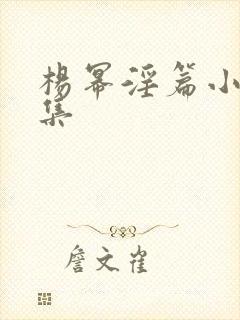 杨幂淫篇小
集
詹文雀